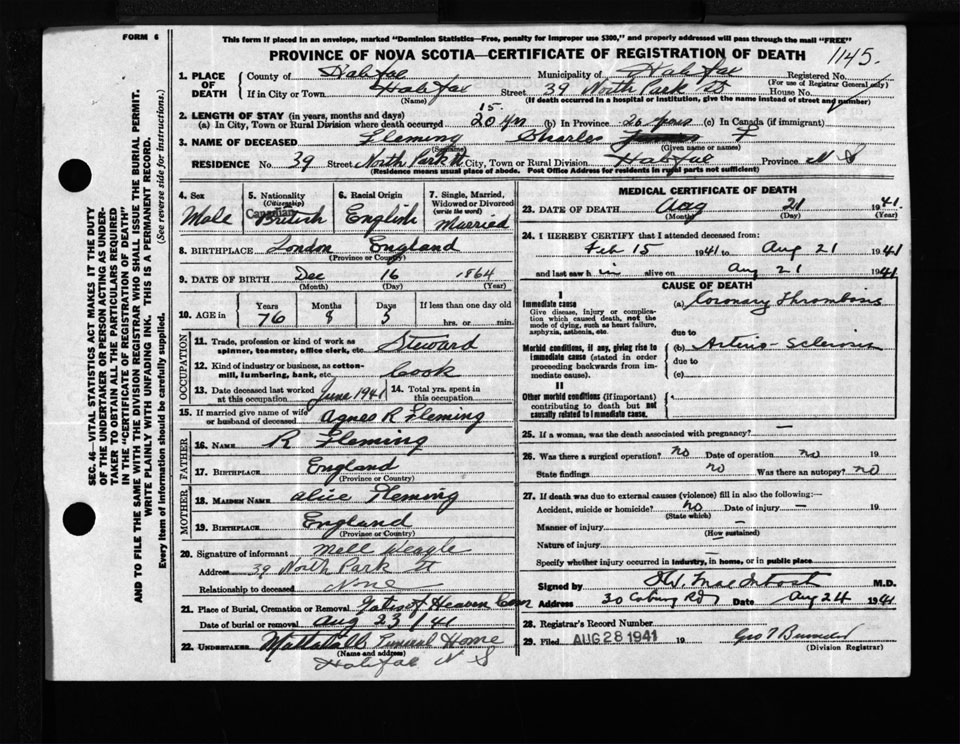 FORM 6
This form if placed in an envelope, marked "Dominion Statistics—Free, penalty for improper use $300," and properly addressed will pass through the mail "FREE"
PROVINCE OF NOVA SCOTIA—CERTIFICATE OF REGISTRATION OF DEATH
1145.
1. PLACE OF DEATH
County of Halifax Municipality of Halifax Registered No.
(For use of Registrar General only)
If in City or Town Halifax Street 39 North Park St House No.
(Name) (If death occurred in a hospital or institution, give the name instead of street and number)
2. LENGTH OF STAY (in years, months and days)
15.
(a) In City, Town or Rural Division where death occurred 20 yrs (b) In Province 26 years (c) In Canada (if immigrant)
3. NAME OF DECEASED Fleming Charles F
(Surname) (Given name or names)
RESIDENCE No. 39 Street North Park St. City, Town or Rural Division Halifax Province N S
(Residence means usual place of abode. Post Office Address for residents in rural parts not sufficient)
4. Sex
Male
5. Nationality
(Citizenship)
Canadian
British
6. Racial Origin
English
7. Single, Married, Widowed or Divorced
(write the word)
Married
8. BIRTHPLACE London England
(Province or Country)
9. DATE OF BIRTH Dec 16 1864
(Month) (Day) (Year)
10. AGE in
Years Months Days If less than one day old
76 8 5 hrs. or min.
OCCUPATION
11. Trade, profession or kind of work as
spinner, teamster, office clerk, etc. Steward
12. Kind of industry or business, as cotton-
mill, lumbering, bank, etc. Cook
13. Date deceased last worked at this occupation June 1941
14. Total yrs. spent in this occupation
15. If married give name of wife or husband of deceased Agnes R Fleming
FATHER
16. NAME R Fleming
17. BIRTHPLACE England
(Province or Country)
MOTHER
18. MAIDEN NAME Alice Fleming
19. BIRTHPLACE England
(Province or Country)
20. Signature of informant Mell Weagle
Address 39 North Park St
Relationship to deceased None
21. Place of Burial, Cremation or Removal Gates of Heaven Cem
Date of burial or removal Aug 23/41
22. UNDERTAKER Mattatalls Funeral Home
(Name and address)
Halifax N S
MEDICAL CERTIFICATE OF DEATH
23. DATE OF DEATH Aug 21 1941.
(Month) (Day) (Year)
24. I HEREBY CERTIFY that I attended deceased from:
Feb 15 1941 to Aug 21 1941
and last saw h im alive on Aug 21 1941
CAUSE OF DEATH
I
Immediate cause
Give disease, injury or complication which caused death, not the mode of dying, such as heart failure, asphyxia, asthenia, etc.
(a) Coronary Thrombosis
due to
Morbid conditions, if any, giving rise to immediate cause (stated in order proceeding backwards from immediate cause).
(b) Arterio-Sclerosis
due to
(c)
II
Other morbid conditions (if important) contributing to death but not causally related to immediate cause.
25. If a woman, was the death associated with pregnancy? —
26. Was there a surgical operation? no Date of operation no 19
State findings no Was there an autopsy? no
27. If death was due to external causes (violence) fill in also the following:—
Accident, suicide or homicide? no Date of injury — 19
(State which)
Manner of injury —
(How sustained)
Nature of injury —
Specify whether injury occurred in industry, in home, or in public place
Signed by H.W. MacIntosh M.D.
Address 30 Coburg Rd Date Aug 24 1941
28. Registrar's Record Number
29. Filed AUG 28 1941 19 Geo T
(Division Registrar)
SEC. 46—VITAL STATISTICS ACT MAKES IT THE DUTY
OF THE UNDERTAKER OR PERSON ACTING AS UNDER-
TAKER TO OBTAIN ALL THE PARTICULARS REQUIRED
IN THE "CERTIFICATE OF REGISTRATION OF DEATH"
AND TO FILE THE SAME WITH THE DIVISION REGISTRAR WHO SHALL ISSUE THE BURIAL PERMIT.
WRITE PLAINLY WITH UNFADING INK. THIS IS A PERMANENT RECORD.
Every item of information should be carefully supplied. (See reverse side for instructions.)